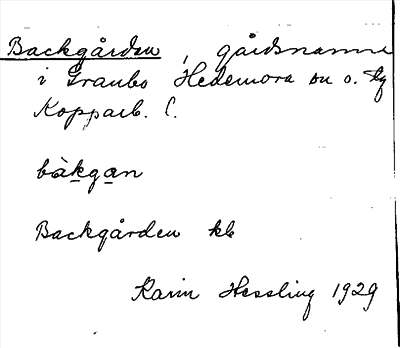 Backgården, gårdsnamn
i Granbo Hedemora sn o. tg
Kopparb. l.
bàkgan
Backgården kb
Karin Hessling 1929